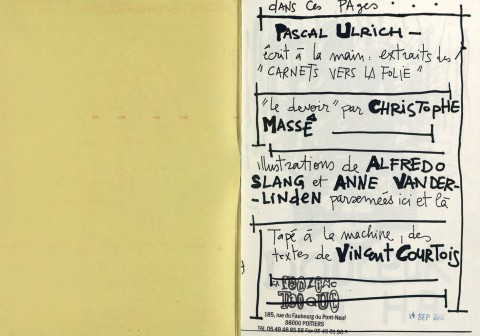 DANS CES PAGES . . . .
PASCAL ULRICH —
écrit à la main : extraits des
"CARNETS VERS LA FOLIE"
"le devoir" par CHRISTOPHE
MASSÉ
illustrations de ALFREDO
SLANG et ANNE VANDER-
-LINDEN parsemées ici et là
Tapé à la machine, des
textes de VINCENT COURTOIS
185, rue du Faubourg du Pont-Neuf
86000 POITIERS